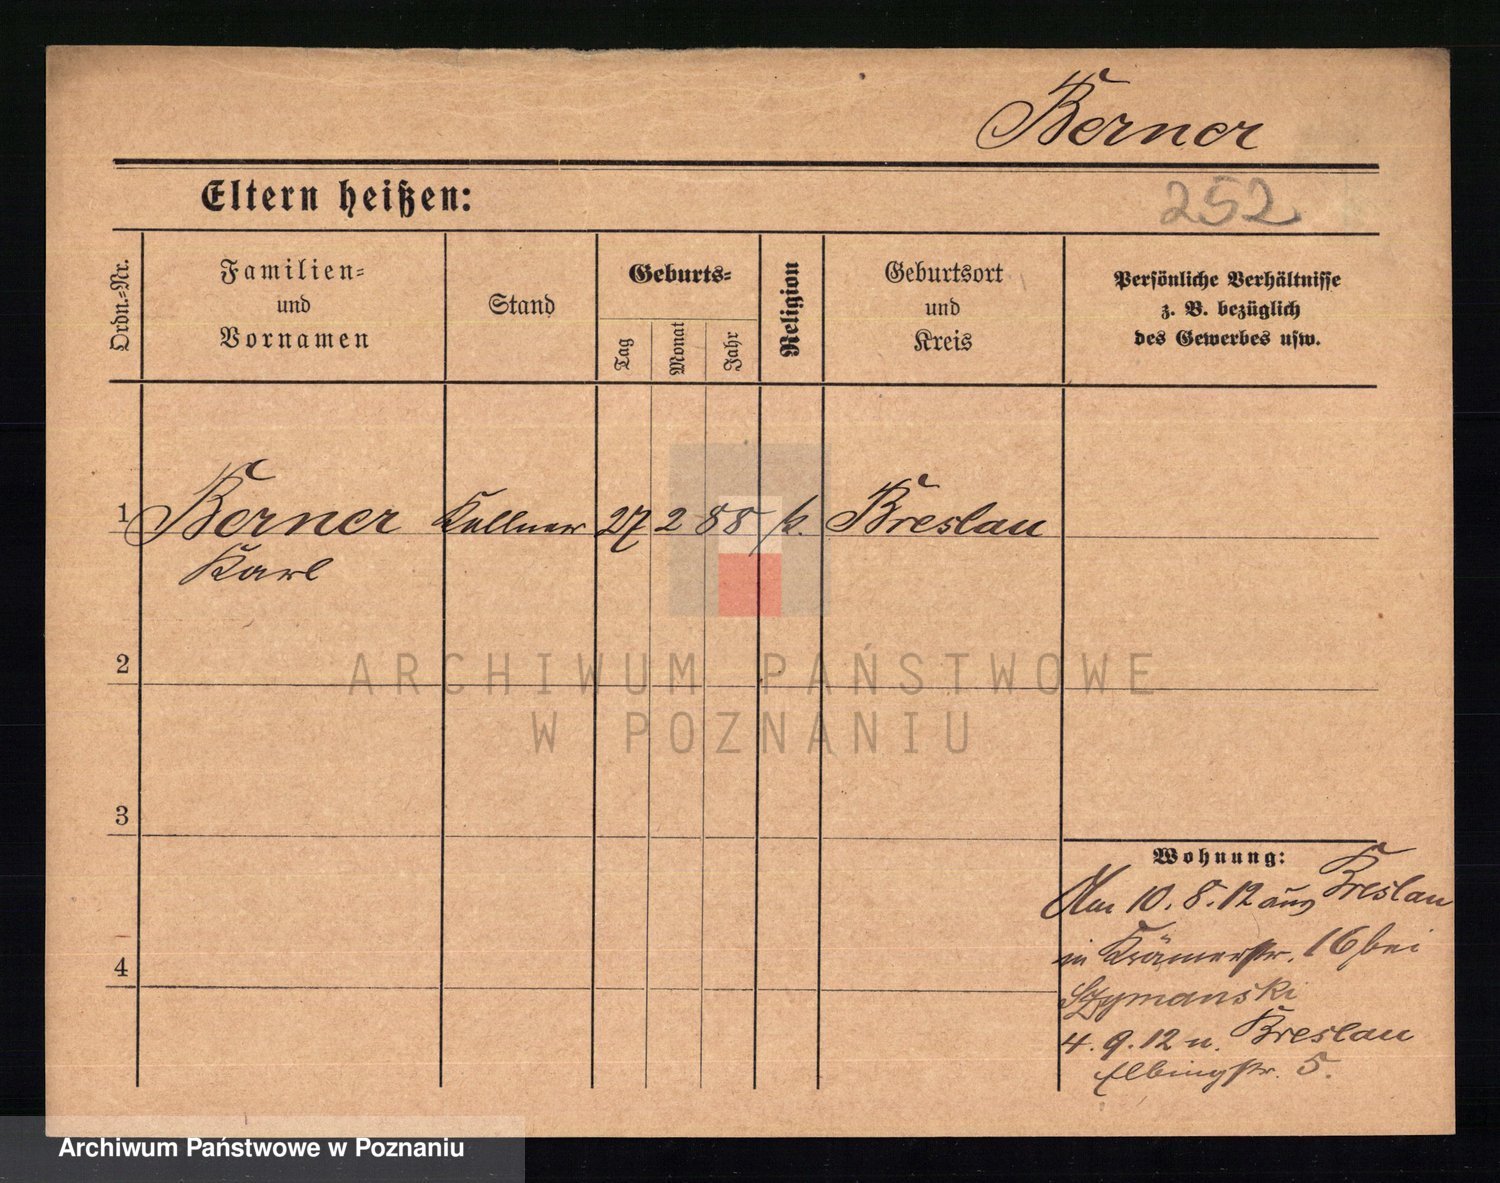 Berner
Eltern heißen:
252
Ordn.-Nr.
Familien-
und
Vornamen
Stand
Geburts-
Tag
Monat
Jahr
Religion
Geburtsort
und
Kreis
Persönliche Verhältnisse
z. B. bezüglich
des Gewerbes usw.
1 Berner Kellner 27 2 88 k. Breslau
Karl
2
ARCHIWUM PAŃSTWOWE
W POZNANIU
3
Wohnung:
Am 10. 8. 12 aus Breslau
in Krämerstr. 16 bei
Szymanski
4. 9. 12 n. Breslau
Elbingstr. 5.
4
Archiwum Państwowe w Poznaniu